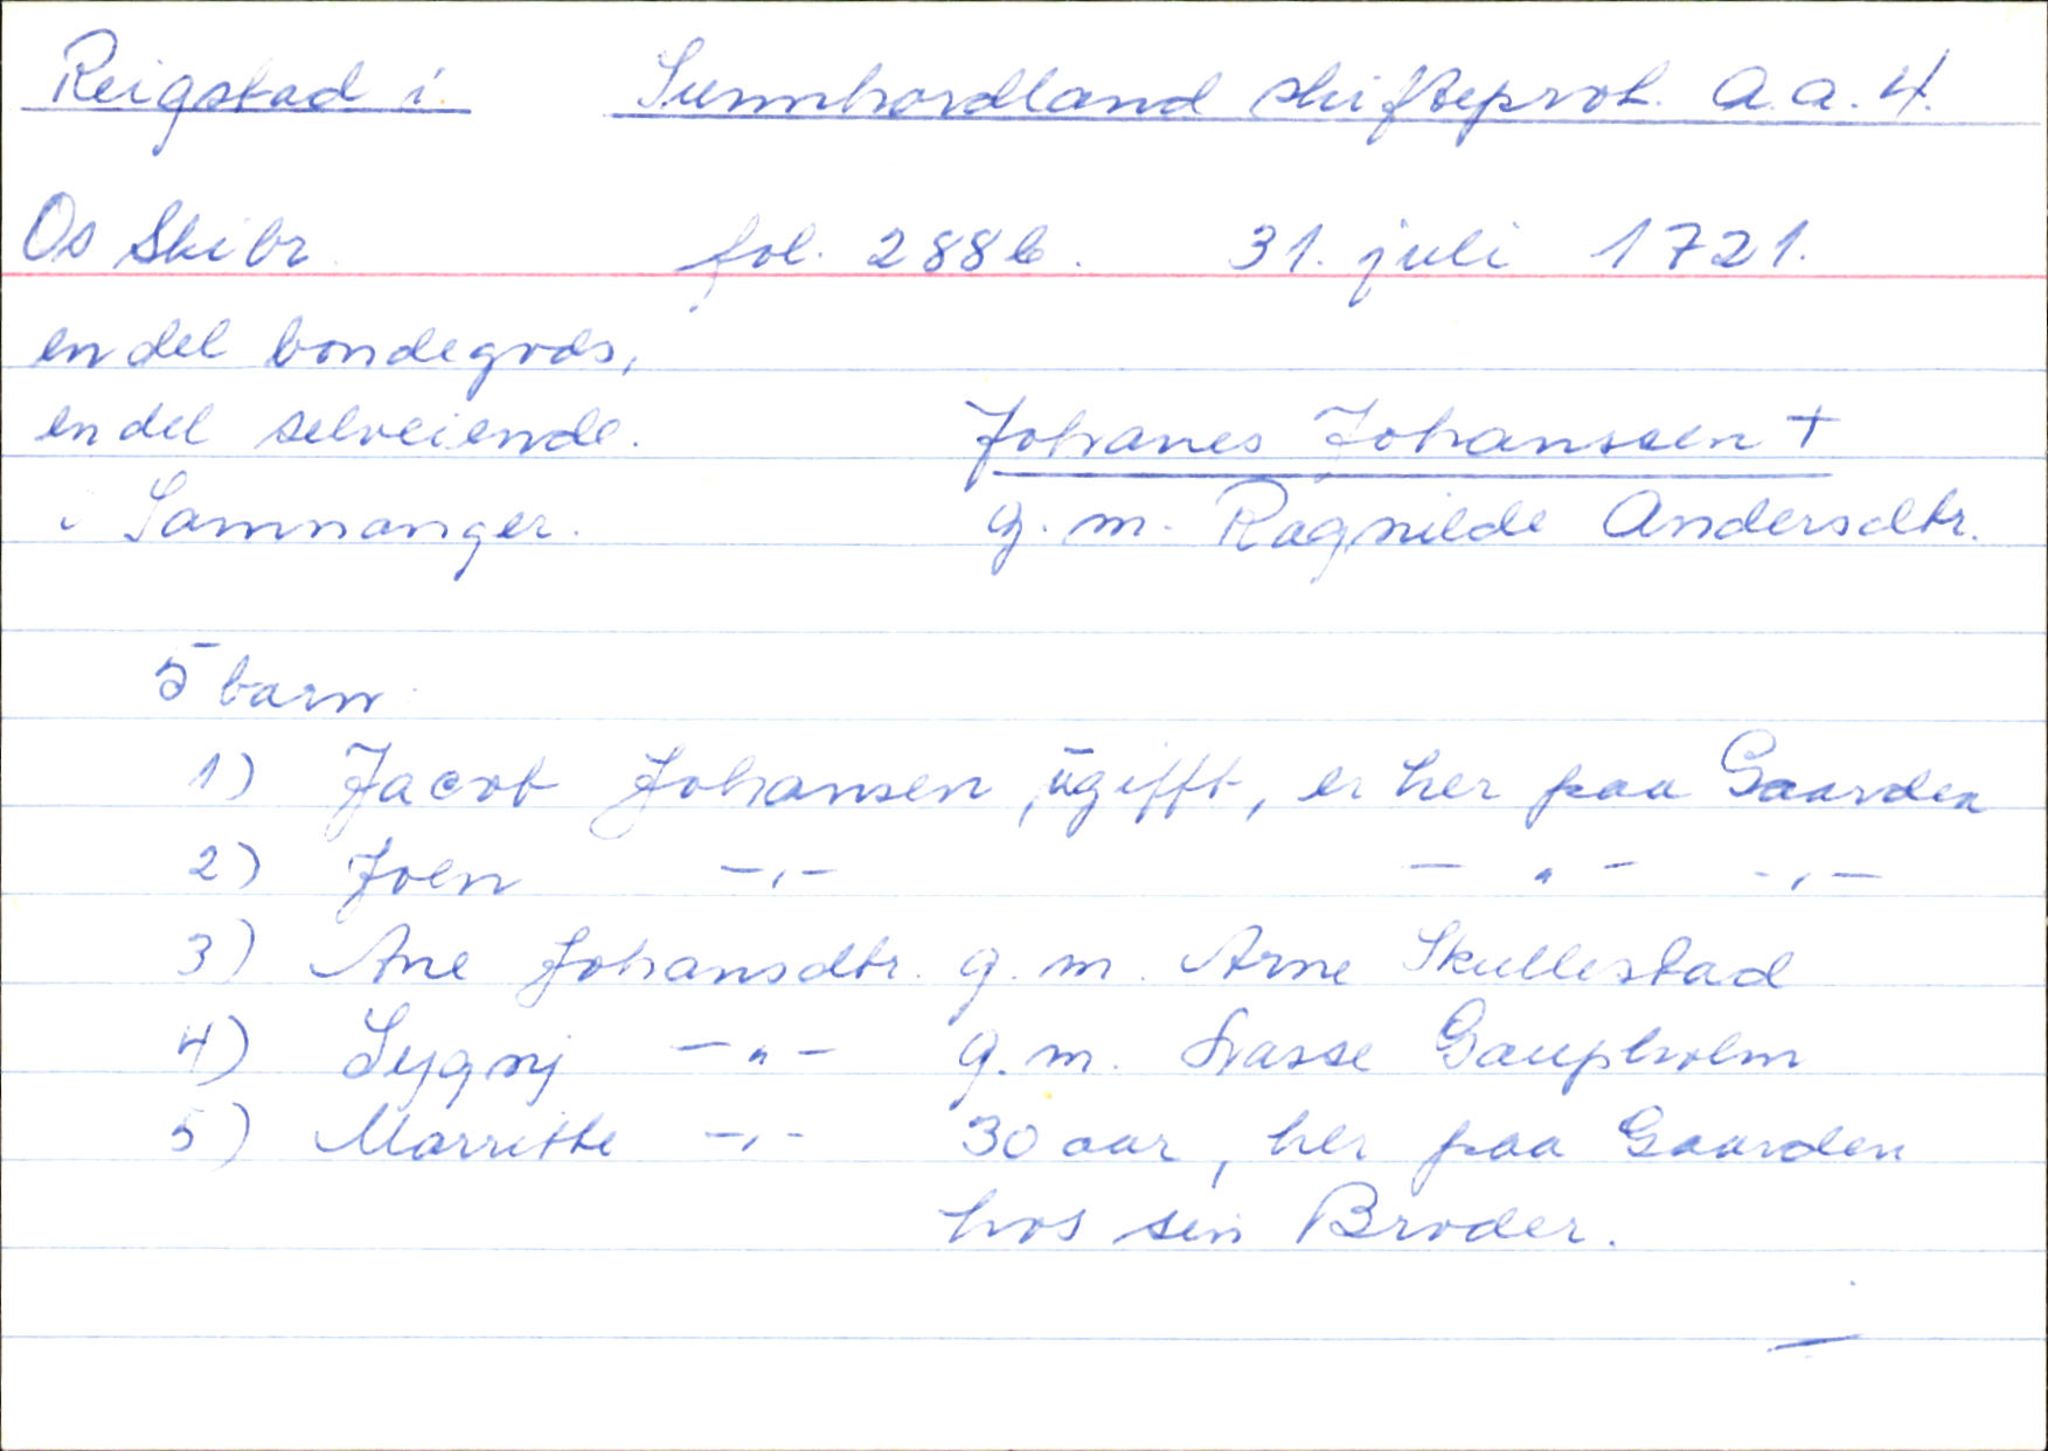 Reigstad i Sunnhordland skifteprot. A.a.4.
Os Skibr. fol. 288b. 31. juli 1721.
en del bondegods,
en del selveiende. Johanes Johanssen +
i Samnanger. g. m. Ragnilde Andersdtr.
5 barn
1) Jacob Johansen, ūgifft, er her paa Gaarden
2) Joen -"- -"- -"-
3) Ane Johansdtr. g. m. Arne Skullestad
4) Sygnj -"- g. m. Lasse Gaupholm
5) Marritte -"- 30 aar, her paa Gaarden
hos sin Broder.